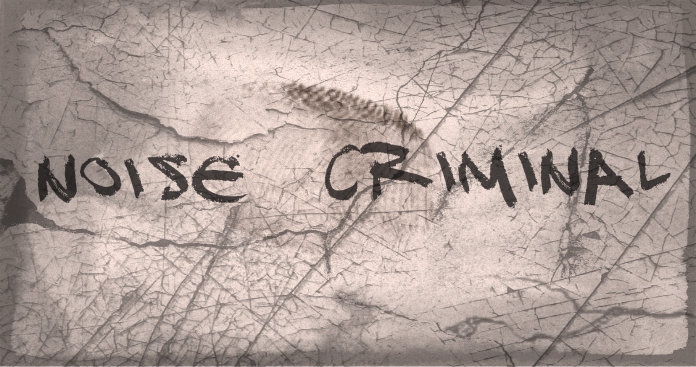 NOISE CRIMINAL